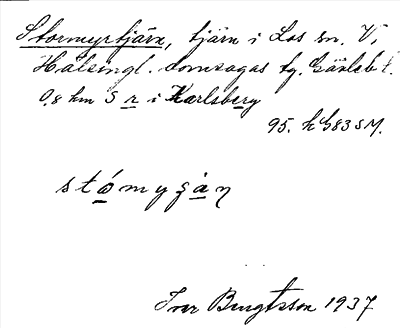 Stormyrtjärn, tjärn i Los sn. V,
Hälsingl. domsagas tg. Gävleb l.
0,8 km S r i Karlsberg
95. h G83 SM.
stómyg̣àn
Iver Bengtsson 1937